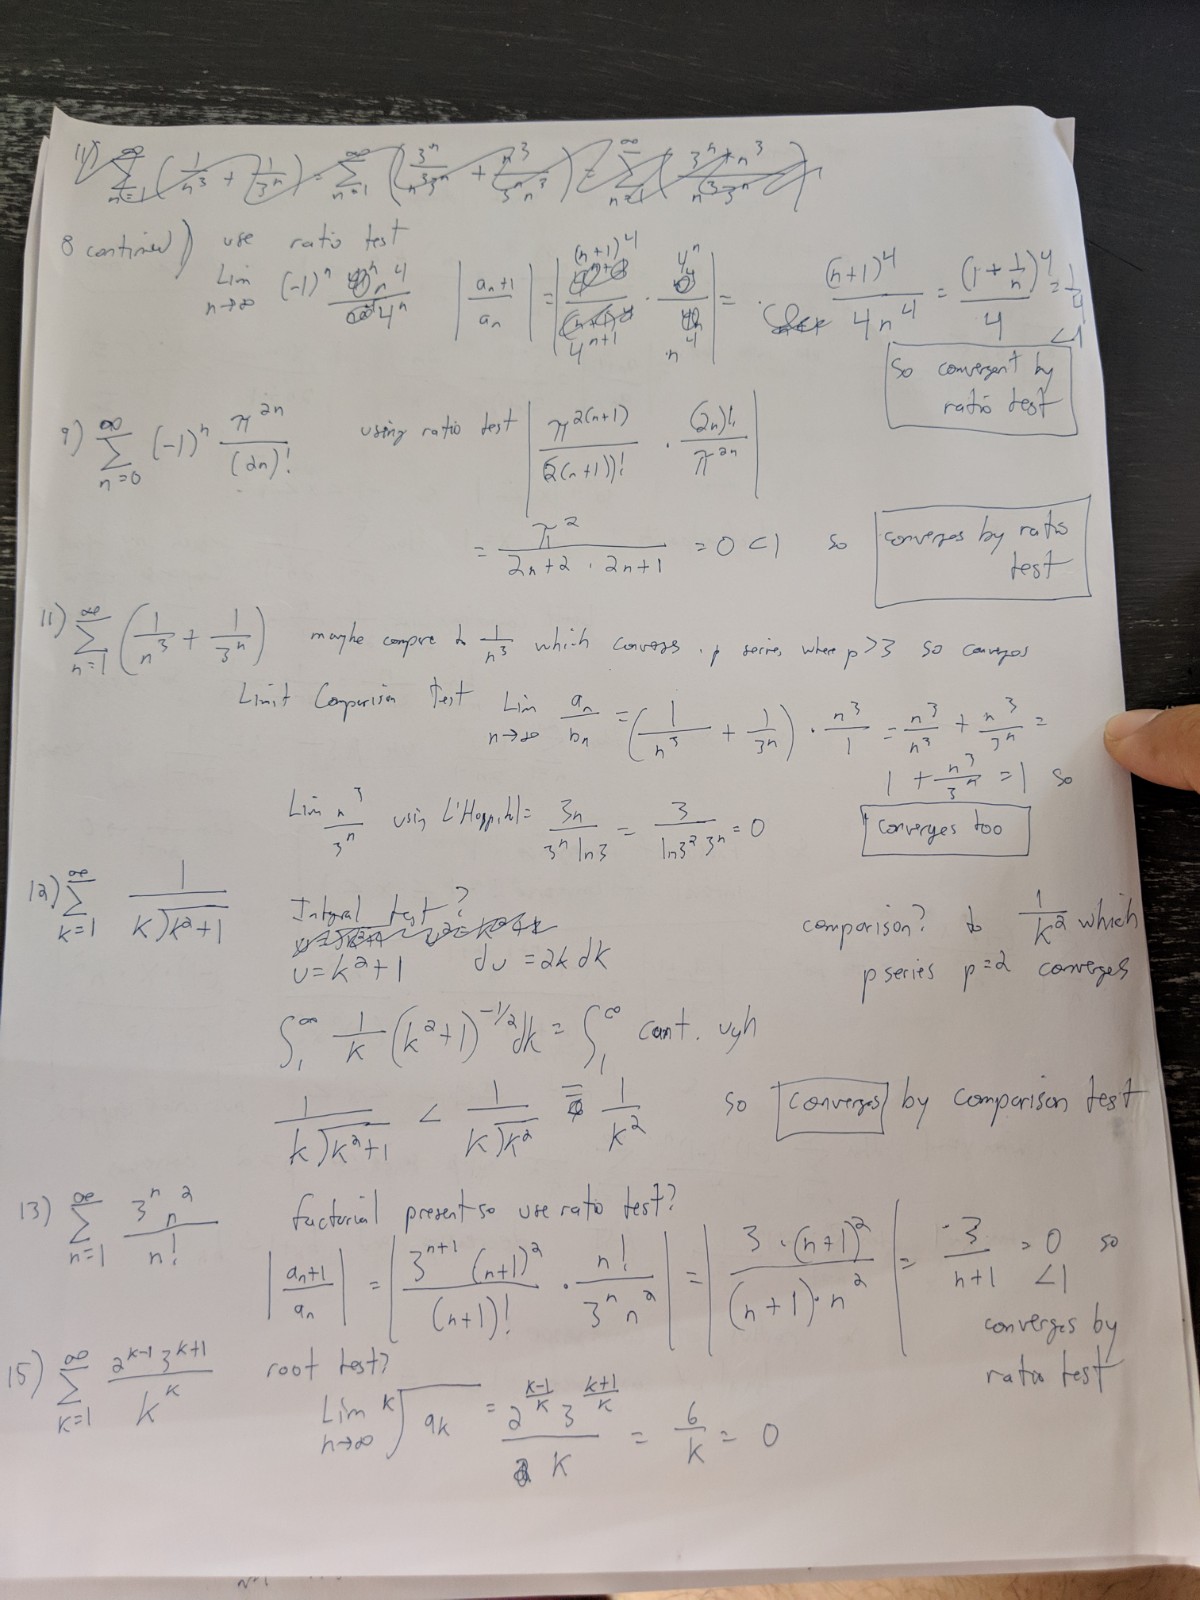 11) ∞ Σ n=1 (1/n³ + 1/3ⁿ) = ∞ Σ n=1 (3ⁿ/n³3ⁿ + n³/3ⁿn³) = ∞ Σ n=1 (3ⁿ+n³/n³3ⁿ)
8 continued) use ratio test
Lim n→∞ (-1)ⁿ n⁴/4ⁿ |aₙ₊₁/aₙ| = |(n+1)⁴/4ⁿ⁺¹ · 4ⁿ/n⁴| = (n+1)⁴/4n⁴ = (1+1/n)⁴/4 = 1/4 <1
So convergent by
ratio test
9) ∞ Σ n=0 (-1)ⁿ π²ⁿ/(2n)! using ratio test |π²⁽ⁿ⁺¹⁾/(2(n+1))! · (2n)!/π²ⁿ|
= π²/2n+2 · 2n+1 = 0 <1 so converges by ratio
test
11) ∞ Σ n=1 (1/n³ + 1/3ⁿ) maybe compare to 1/n³ which converges . p series where p>3 so converges
Limit Comparison Test Lim n→∞ aₙ/bₙ = (1/n³ + 1/3ⁿ) · n³/1 = n³/n³ + n³/3ⁿ =
1 + n³/3ⁿ = 1 so
Lim n³/3ⁿ using L'Hopital = 3n/3ⁿ ln3 = 3/ln3² 3ⁿ = 0 converges too
12) ∞ Σ k=1 1/k√k²+1 Integral test? comparison? to 1/k² which
u = k²+1 du = 2k dk p series p=2 converges
∫₁^∞ 1/k (k²+1)^-1/2 dk = ∫₁^∞ cant. ugh
1/k√k²+1 < 1/k√k² = 1/k² so converges by comparison test
13) ∞ Σ n=1 3ⁿn²/n! factorial present so use ratio test?
|aₙ₊₁/aₙ| = |3ⁿ⁺¹ (n+1)²/(n+1)! · n!/3ⁿ n²| = |3 · (n+1)²/(n+1) · n²| = 3/n+1 = 0 <1 so
converges by
ratio test
15) ∞ Σ k=1 2^k-1 3^k+1/k^k root test?
Lim n→∞ ᵏ√aₖ = 2^(k-1/k) 3^(k+1/k)/k = 6/k = 0